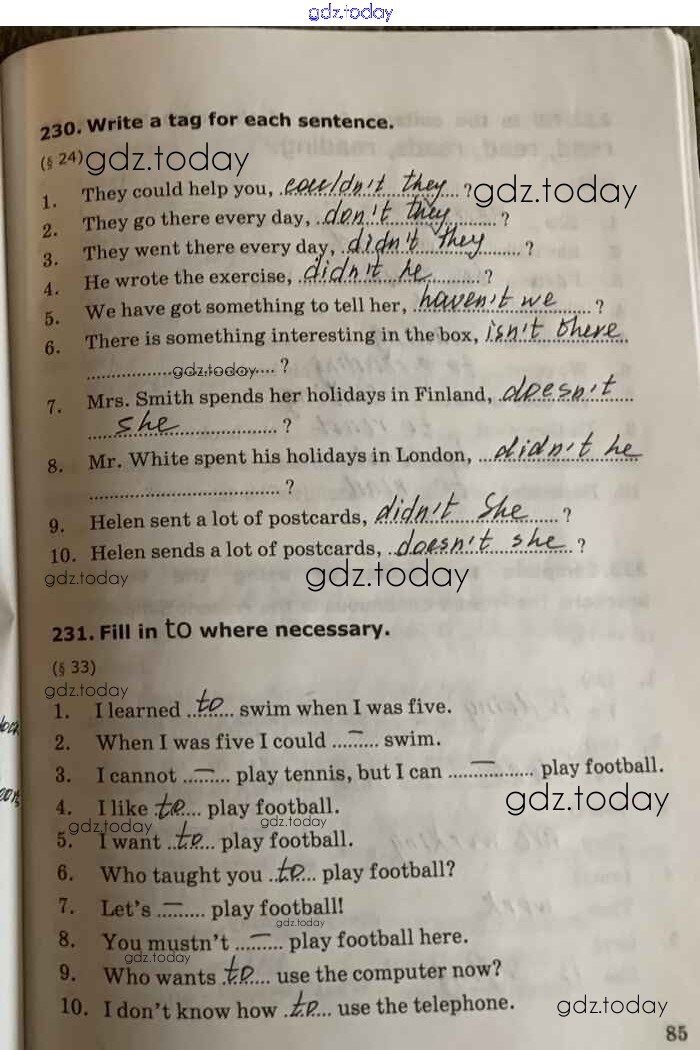 gdz.today
230. Write a tag for each sentence.
(§ 24) gdz.today
1. They could help you, couldn't they ? gdz.today
2. They go there every day, don't they ?
3. They went there every day, didn't they ?
4. He wrote the exercise, didn't he ?
5. We have got something to tell her, haven't we ?
6. There is something interesting in the box, isn't there
gdz.today ?
7. Mrs. Smith spends her holidays in Finland, doesn't
she ?
8. Mr. White spent his holidays in London, didn't he
?
9. Helen sent a lot of postcards, didn't she ?
10. Helen sends a lot of postcards, doesn't she ?
gdz.today gdz.today
231. Fill in to where necessary.
(§ 33)
gdz.today
1. I learned to swim when I was five.
2. When I was five I could – swim.
3. I cannot – play tennis, but I can – play football.
4. I like to play football. gdz.today
gdz.today gdz.today
5. I want to play football.
6. Who taught you to play football?
7. Let's – play football!
gdz.today
8. You mustn't – play football here.
gdz.today
9. Who wants to use the computer now?
10. I don't know how to use the telephone. gdz.today
85